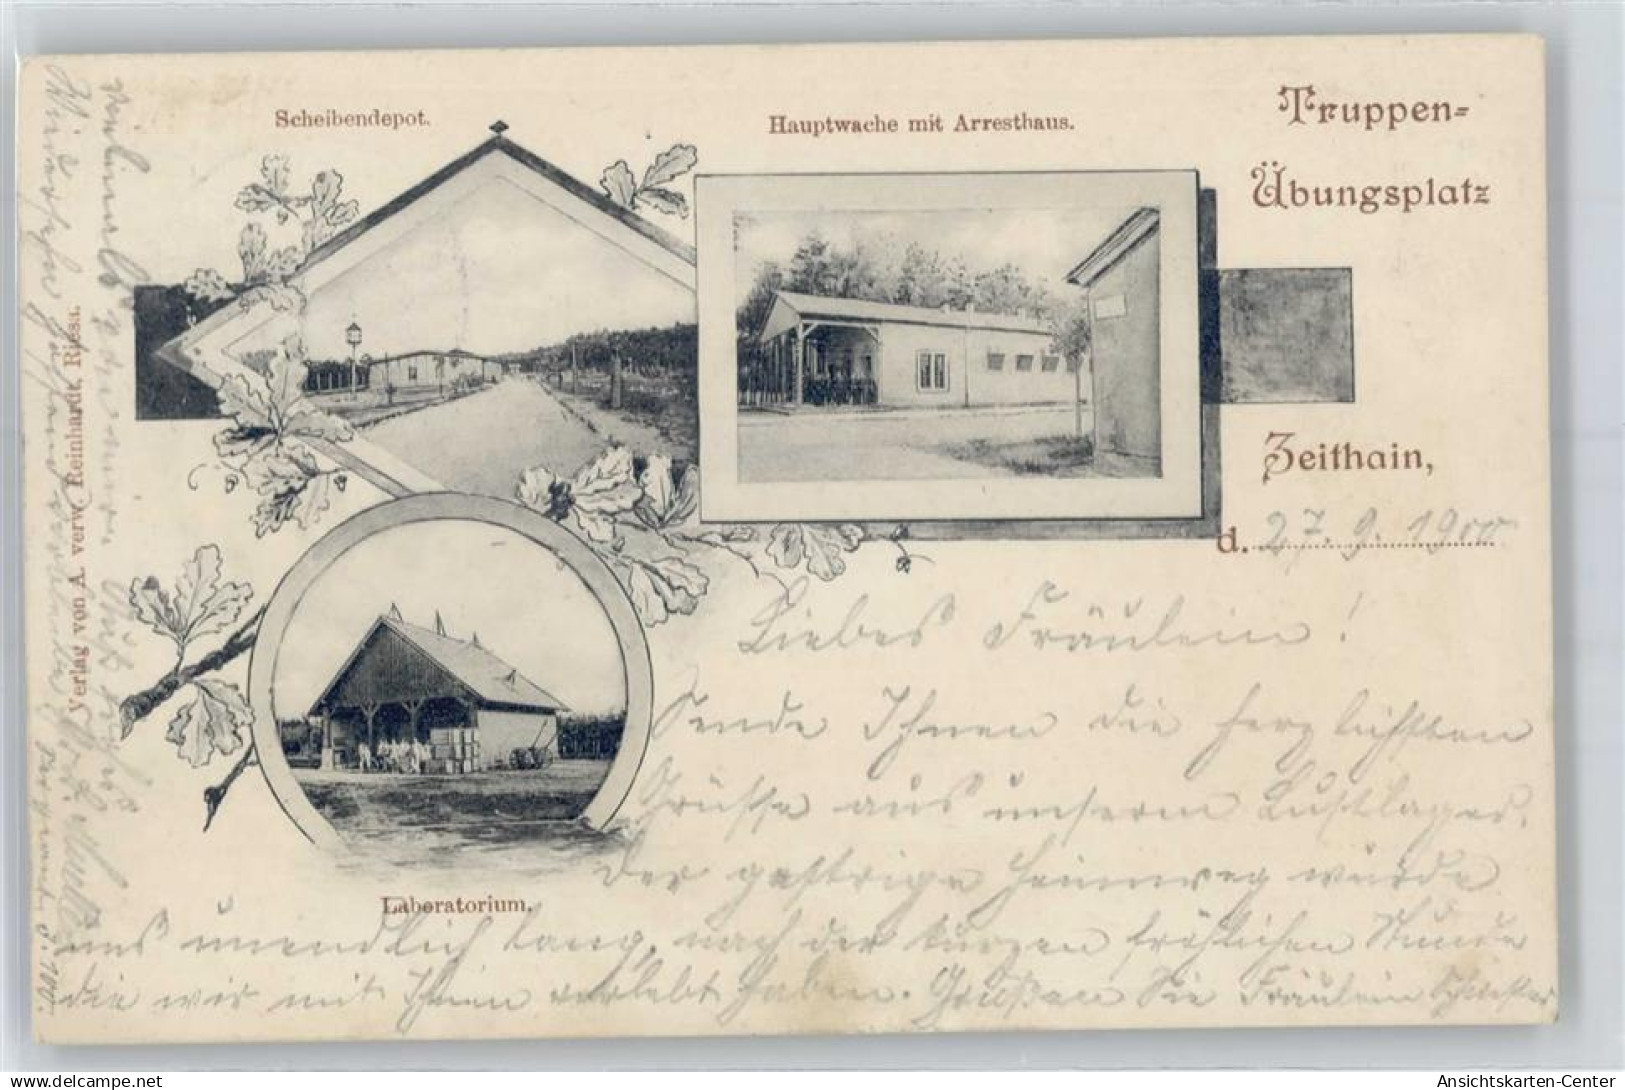 Scheibendepot.
Hauptwache mit Arresthaus.
Truppen-
Übungsplatz
Zeithain,
d. 27. 9. 1900
Laboratorium.
Verlag von A. verw. Reinhardt, Riesa.
Liebes Fräulein!
Sende Ihnen die herzlichsten
Grüsse aus unserm Lustlager.
Der gestrige Heimweg wurde
uns unendlich lang, nach der kurzen fröhlichen Stunde
die wir mit Ihnen verlebt haben. Grüßen Sie Fräulein Schwester
Ansichtskarten-Center